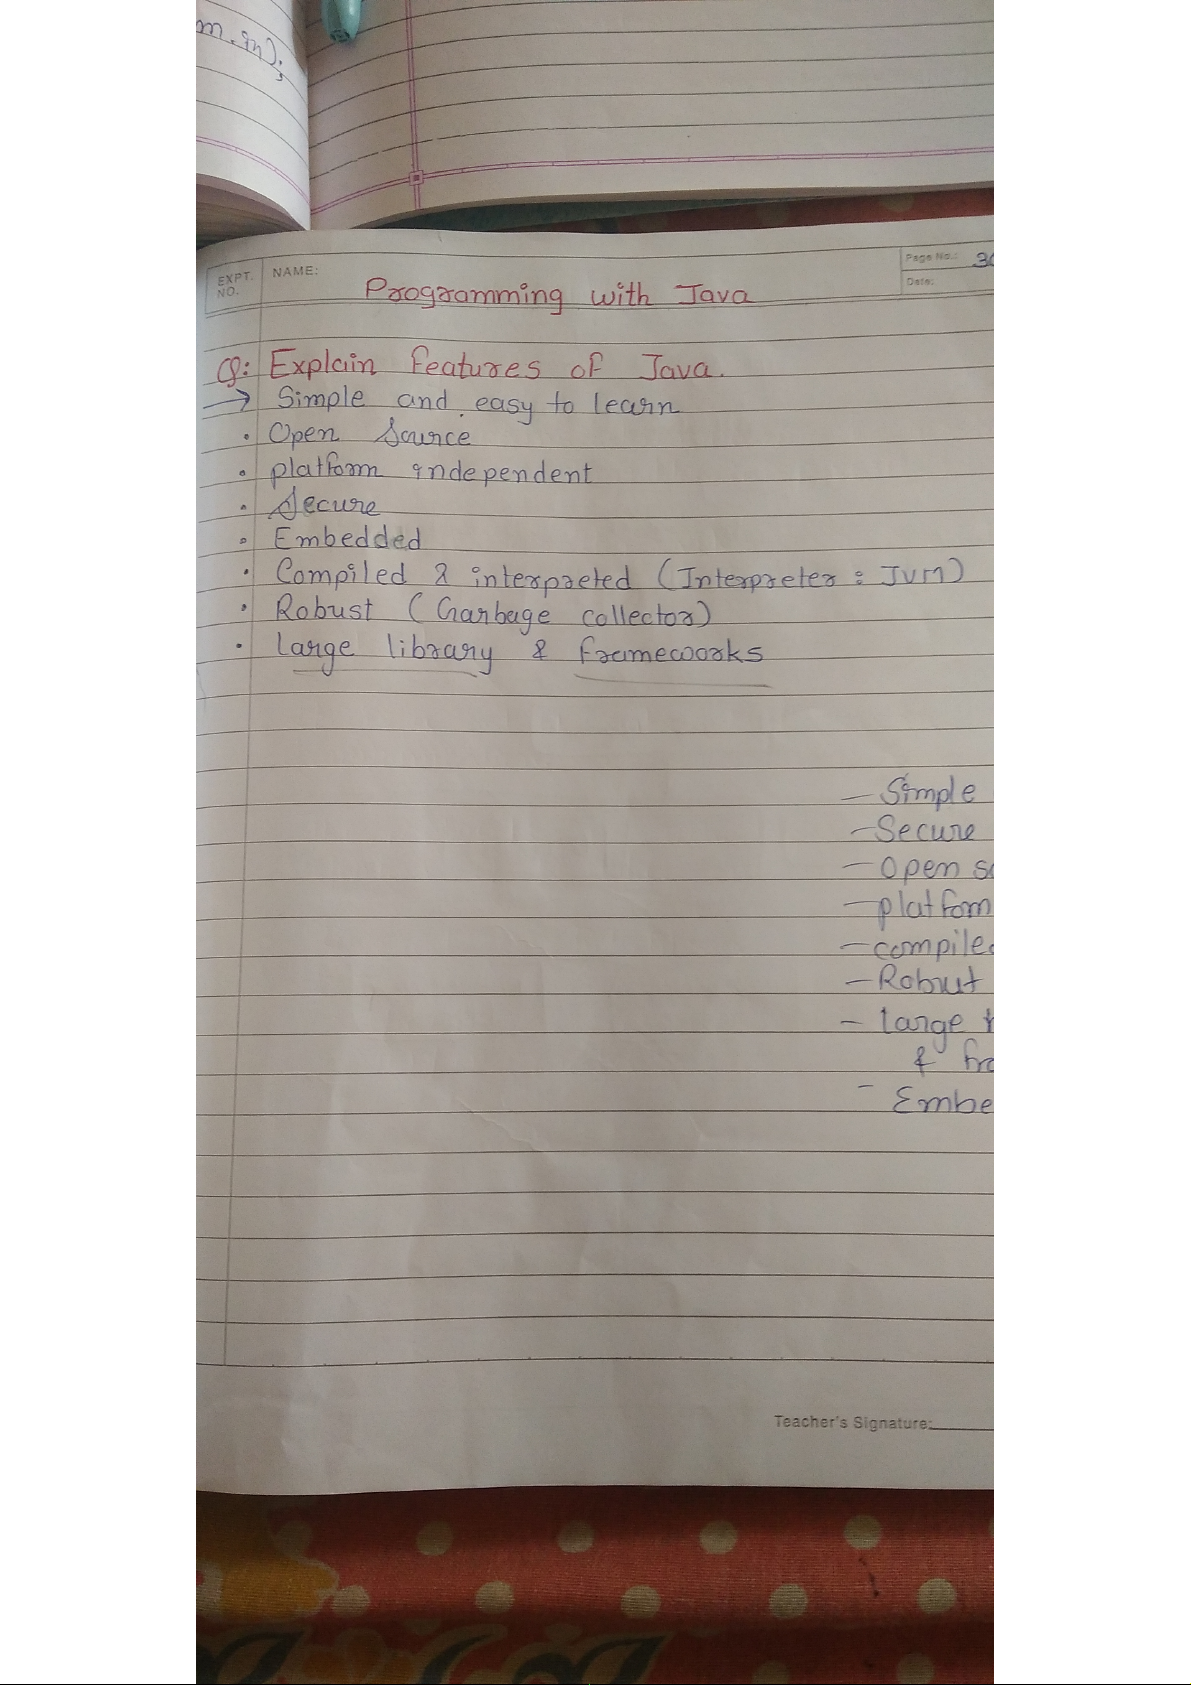 EXPT. NO.
NAME:
Page No.: 30
Date:
Programming with Java
Q: Explain features of Java.
→ Simple and easy to learn
• Open Source
• platform independent
• Secure
• Embedded
• Compiled & interpreted (Interpreter : JVM)
• Robust (Garbage collector)
• large library & frameworks
— Simple
— Secure
— Open so
— platfom
— compiled
— Robust
— large
& fra
- Embe
Teacher's Signature: